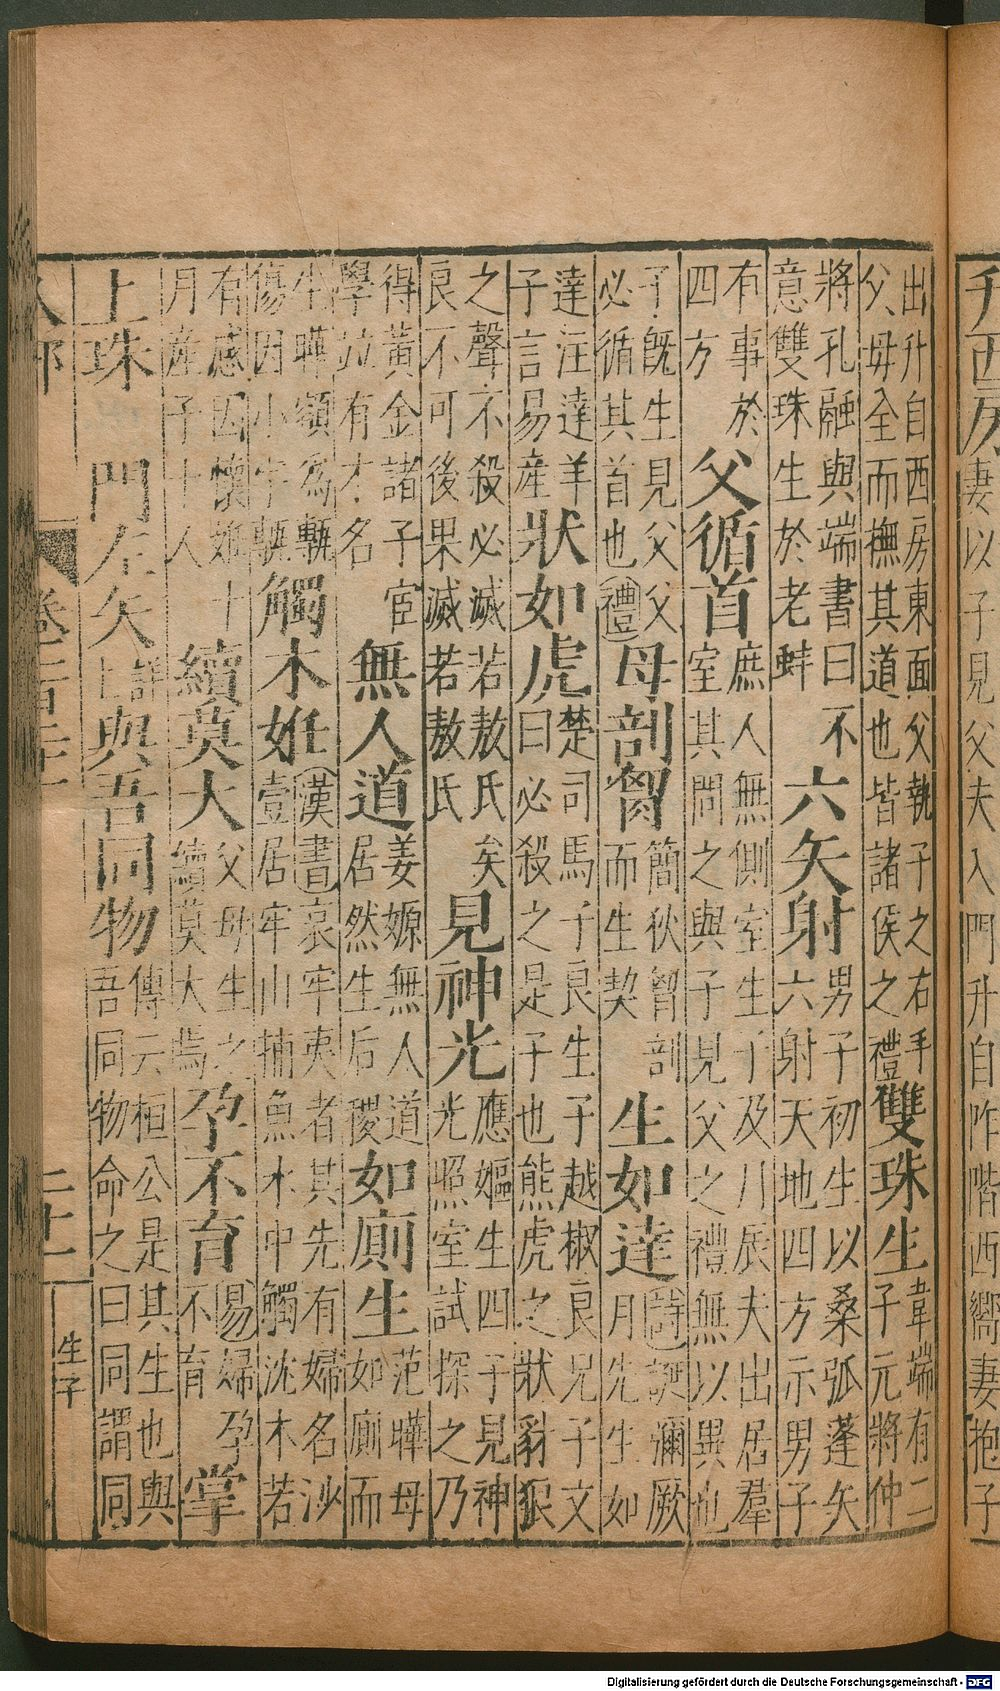 升西房妻以子見父夫入門升自阼階西嚮妻抱子
出升自西房東面父執子之右手
父母全而撫其道也皆諸侯之禮
雙珠生
韋端有二
子元將仲
將孔融與端書曰不
意雙珠生於老蚌
六矢射
男子初生以桑弧蓬矢
六射天地四方示男子
有事於
四方
父循首
庶人無側室生子及川辰夫出居羣
室其問之與子見父之禮無以異也
子旣生見父父
必循其首也禮
母剖胷
簡狄胷剖
而生契
生如達
詩誕彌厥
月先生如
達注達羊
子言易産
狀如虎
楚司馬子良生子越椒良兄子文
曰必殺之是子也熊虎之狀豺狼
之聲不殺必滅若敖氏矣
良不可後果滅若敖氏
見神光
應嫗生四子見神
光照室試探之乃
得黃金諸子宦
學竝有才名
無人道
姜嫄無人道
居然生后稷
如廁生
范曄母
如廁而
生曄額為甎
傷因小字甎
觸木姙
漢書哀牢夷者其先有婦名沙
壹居牢山捕魚水中觸沈木若
有感因懷姙十
月産子十人
續莫大
父母生之
續莫大焉
孕不育
易婦孕
不育
掌
上珠 門左矢
詳
上
與吾同物
傳云桓公是其生也與
吾同物命之曰同謂同
人部
生子
Digitalisierung gefördert durch die Deutsche Forschungsgemeinschaft - DFG